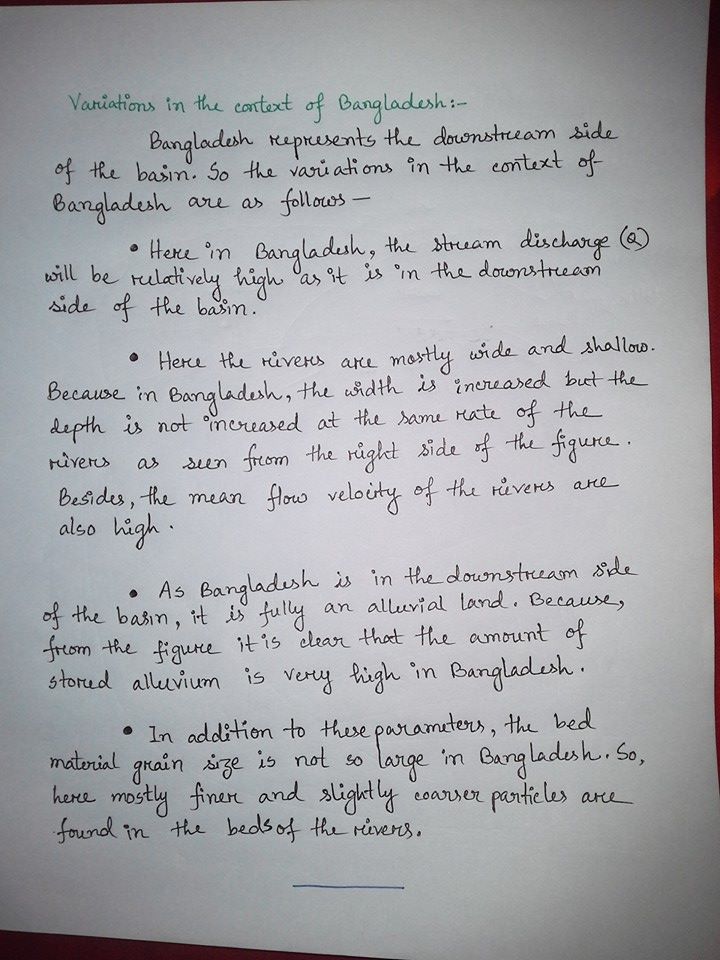 Variations in the context of Bangladesh:-
Bangladesh represents the downstream side
of the basin. So the variations in the context of
Bangladesh are as follows —
• Here in Bangladesh, the stream discharge (Q)
will be relatively high as it is in the downstream
side of the basin.
• Here the rivers are mostly wide and shallow.
Because in Bangladesh, the width is increased but the
depth is not increased at the same rate of the
rivers as seen from the right side of the figure.
Besides, the mean flow velocity of the rivers are
also high.
• As Bangladesh is in the downstream side
of the basin, it is fully an alluvial land. Because,
from the figure it is clear that the amount of
stored alluvium is very high in Bangladesh.
• In addition to these parameters, the bed
material grain size is not so large in Bangladesh. So,
here mostly finer and slightly coarser particles are
found in the beds of the rivers.